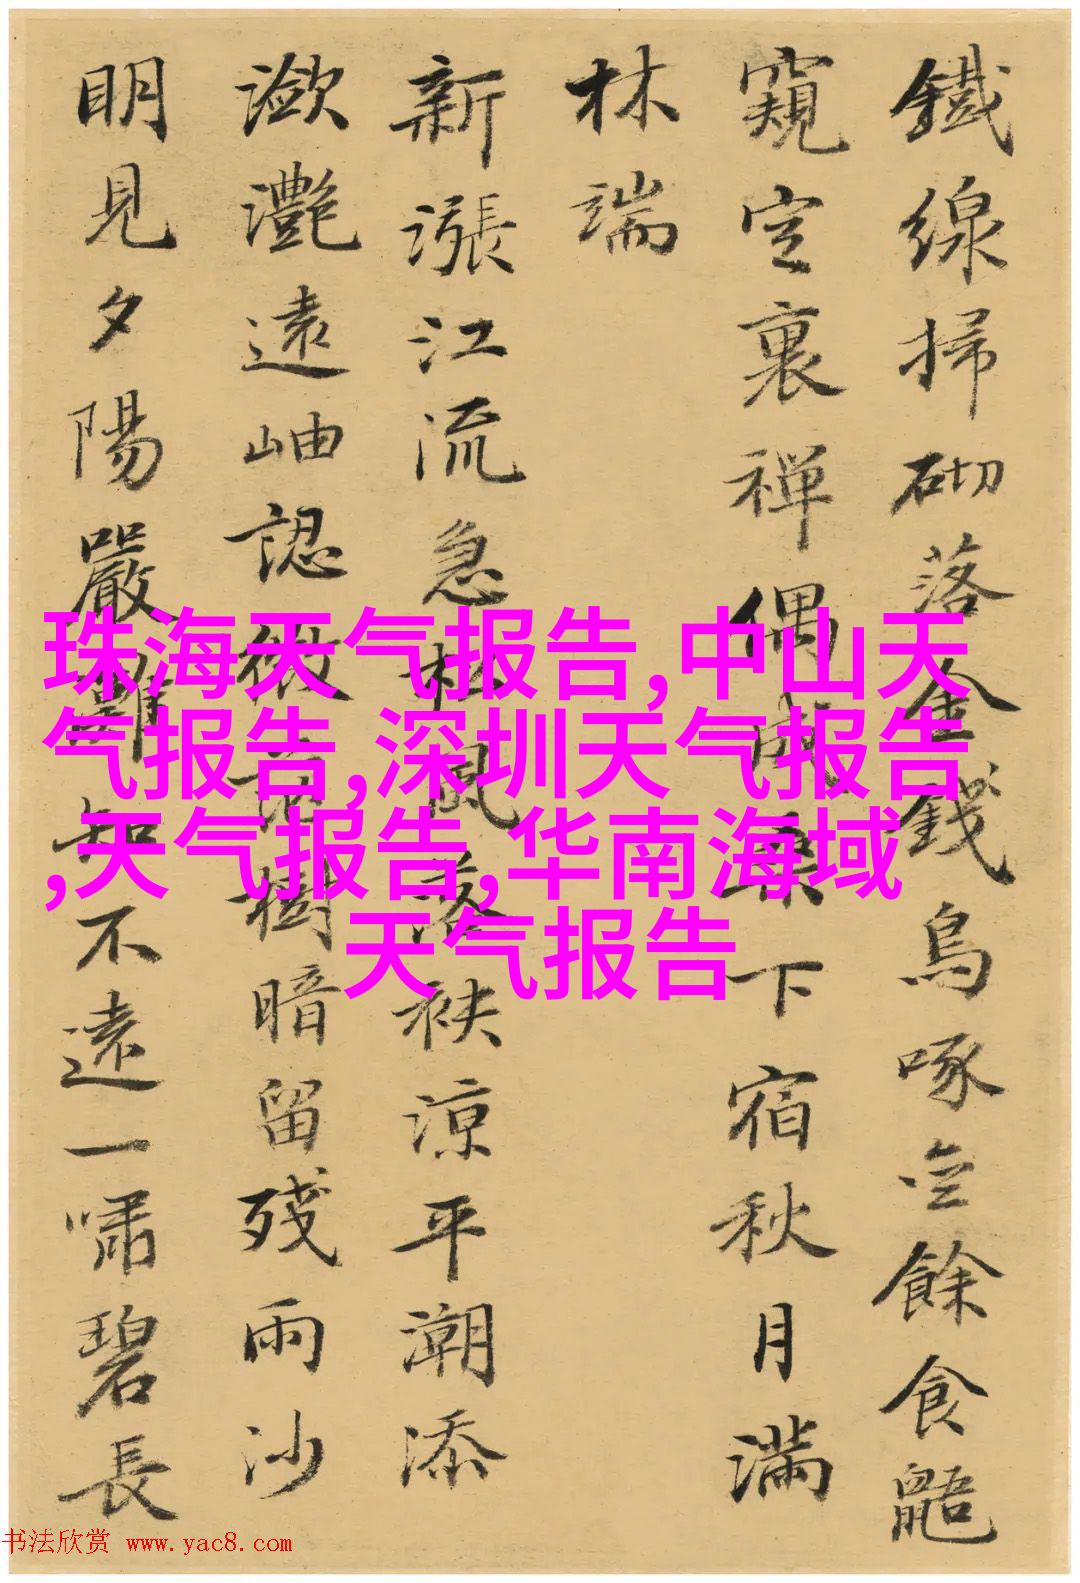 鐵線掃砌落金錢鳥啄空餘食鼯
窺定裏禪偶成桑下宿秋月滿
林端
新漲江流急風落袂涼平潮添
瀲灩遠岫認微茫樹暗留殘雨沙
明見夕陽嚴灘知不遠一嘯碧長
珠海天气报告,中山天
气报告,深圳天气报告
,天气报告,华南海域
天气报告
书法欣赏 www.yac8.com